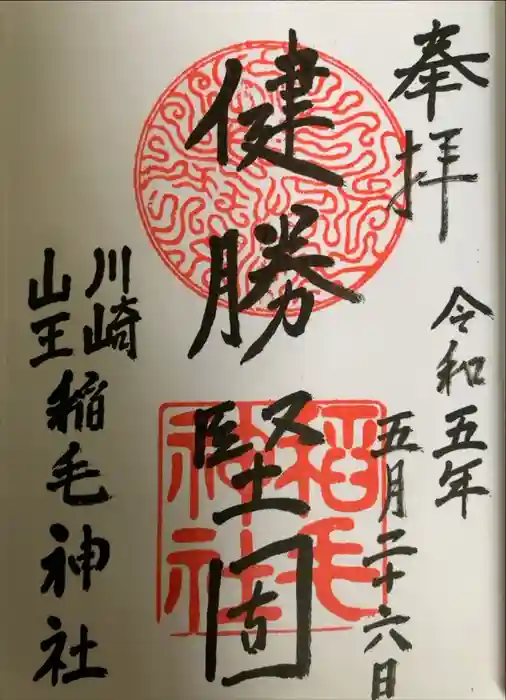 奉拝
令和五年
五月二十六日
健勝堅固
川崎
山王
稲毛神社
稲毛
神社